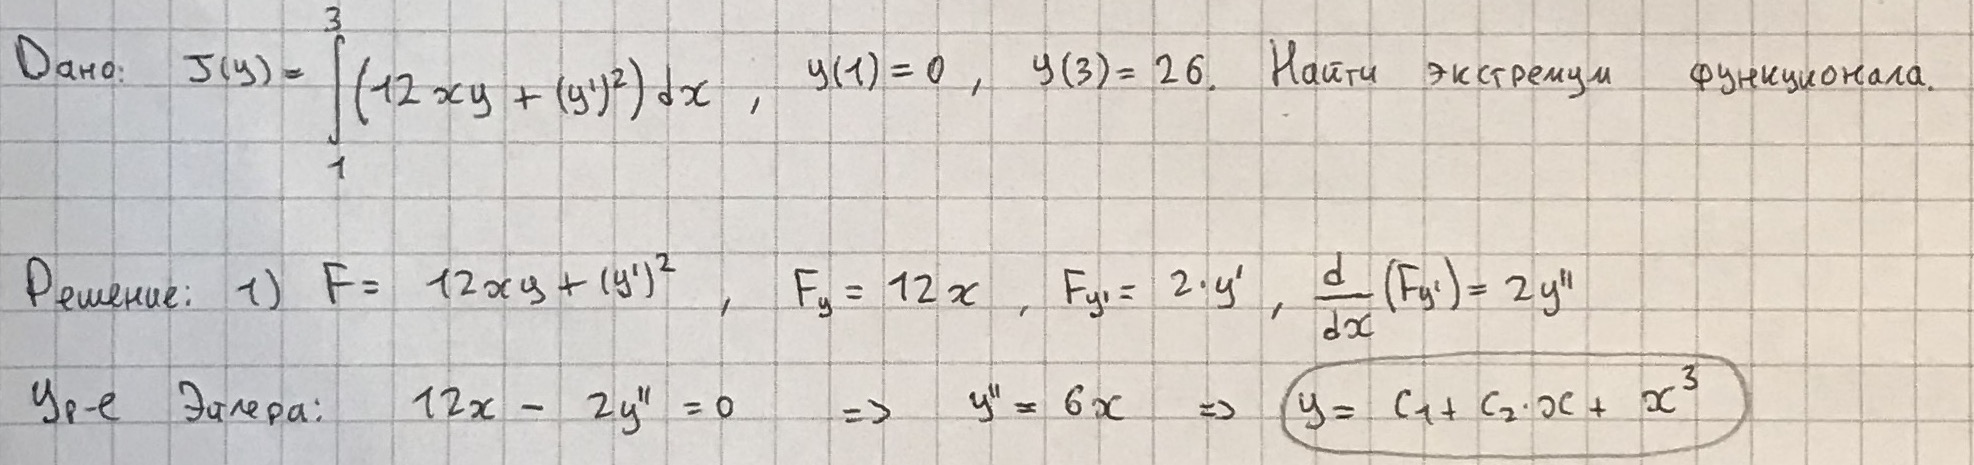 Дано: J(y) = ∫₁³ (12xy + (y')²) dx , y(1) = 0 , y(3) = 26. Найти экстремум функционала.
Решение: 1) F = 12xy + (y')² , F_y = 12x , F_y' = 2·y' , d/dx (F_y') = 2y''
Ур-е Эйлера: 12x - 2y'' = 0 => y'' = 6x => y = C₁ + C₂·x + x³